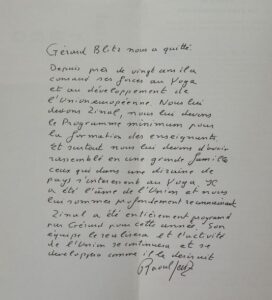 Gérard Blitz nous a quitté.
Depuis près de vingt ans il a
consacré ses forces au Yoga
et au développement de
l'Union européenne. Nous lui
devons Zinal, nous lui devons
le Programme minimum pour
la formation des enseignants.
Et surtout nous lui devons d'avoir
rassemblé en une grande famille
ceux qui dans une dizaine de
pays s'intéressent au Yoga. Il
a été l'âme de l'Union et nous
lui sommes profondément reconnaissants.
Zinal a été entièrement programmé
par Gérard pour cette année. Son
équipe le réalisera et l'activité
de l'Union se continuera et se
développera comme il le désirait
Raoul